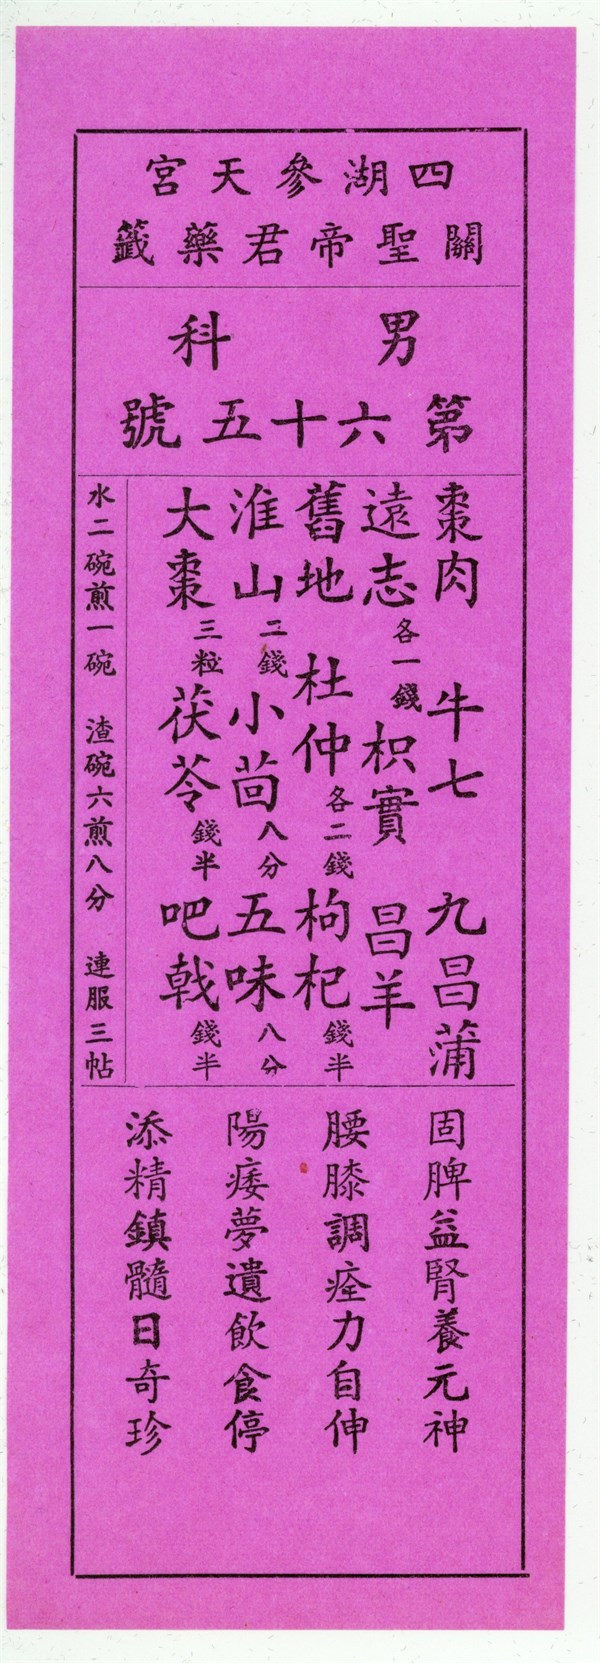 四湖參天宮
關聖帝君藥籤
男科
第六十五號
棗肉 牛七 九昌蒲
遠志各一錢 枳實 昌羊
舊地 杜仲各二錢 枸杞錢半
淮山二錢 小茴八分 五味八分
大棗三粒 茯苓錢半 吧戟錢半
水二碗煎一碗 渣碗六煎八分 連服三帖
固脾益腎養元神
腰膝調痊力自伸
陽痿夢遺飲食停
添精鎮髓日奇珍